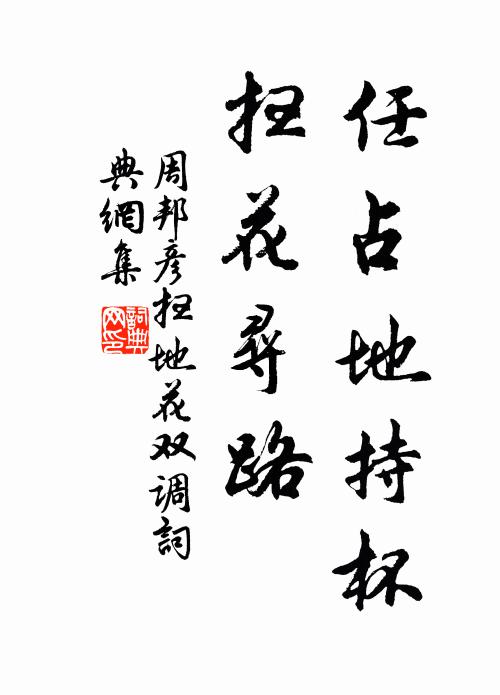 任占地持杯
扫花寻路
周邦彦扫地花双调詞
典網集
詞典网印